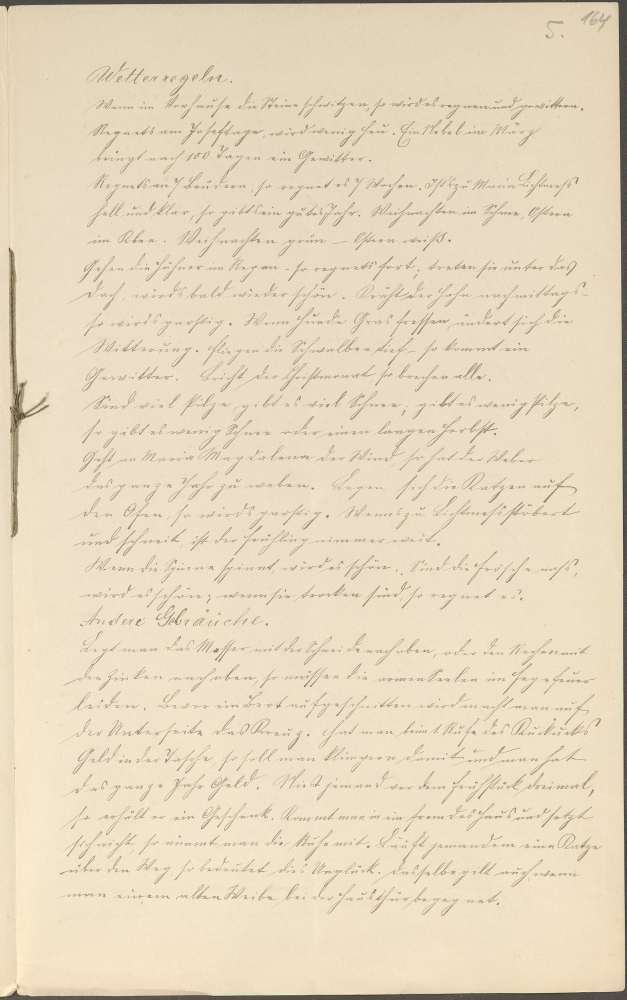 5. 164
Wetterregeln.
Wenn im Vorhause die Steine schwitzen, so wird es regnen und gewittern.
Regnets am Josefitage, wird wenig Heu. Ein Nebel im März
bringt nach 100 Tagen ein Gewitter.
Regnets an 7 Brüdern, so regnet es 7 Wochen. Ists zu Maria Lichtmeß
hell und klar, so gibts ein gutes Jahr. Weihnachten im Schnee, Ostern
im Klee. Weihnachten grün – Ostern weiß.
Gehen die Hühner im Regen – so regnets fort; treten sie unter das
Dach, wirds bald wieder schön. Kräht der Hahn nachmittags –
so wirds garstig. Wenn Hunde Gras fressen, ändert sich die
Witterung. Fliegen die Schwalben tief – so kommt ein
Gewitter. Bricht der Christmonat, so brechen alle.
Sind viel Pilze, gibt es viel Schnee, gibt es wenig Pilze,
so gibt es wenig Schnee oder einen langen Herbst.
Geht an Maria Magdalena der Wind, so hat der Weber
das ganze Jahr zu weben. Legen sich die Katzen auf
den Ofen, so wirds garstig. Wenns zu Lichtmeß stöbert
und schneit, ist der Frühling nimmer weit.
Wenn die Spinne spinnt, wird es schön. Sind die Frösche naß,
wird es schön; wenn sie trocken sind, so regnet es.
Andere Gebräuche.
Legt man das Messer mit der Schneide nach oben, oder den Rechen mit
den Zinken nach oben, so müssen die armen Seelen im Fegefeuer
leiden. Bevor ein Brot aufgeschnitten wird macht man auf
der Unterseite das Kreuz. Hat man beim 1 Rufe des Kuckucks
Geld in der Tasche, so soll man klimpern damit und man hat
das ganze Jahr Geld. Niest jemand vor dem Frühstück dreimal,
so erhält er ein Geschenk. Kommt man in ein fremdes Haus und setzt
sich nicht, so nimmt man die Ruhe mit. Läuft jemandem eine Katze
über den Weg so bedeutet dies Unglück. Dasselbe gilt auch, wenn
man einem alten Weibe bei der Hausthür begegnet.